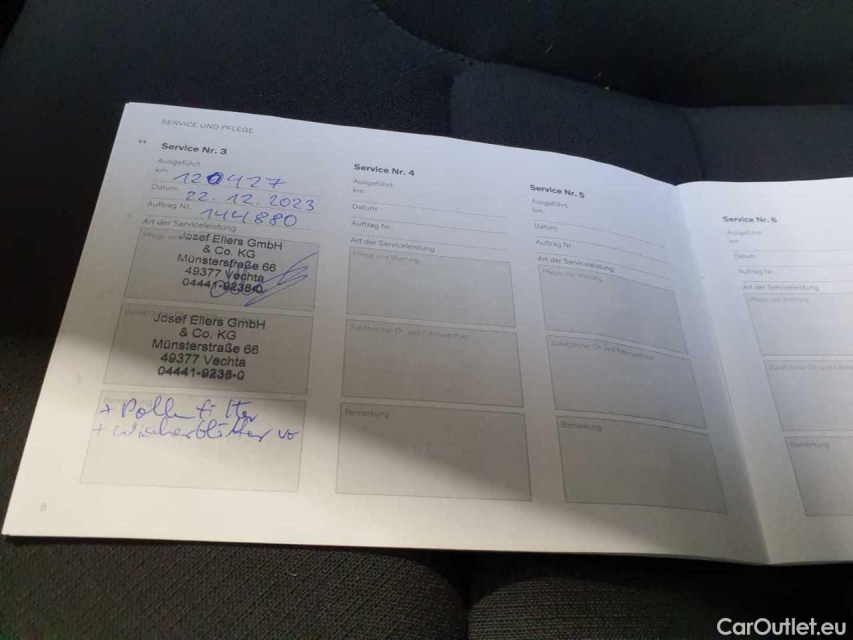 SERVICE UND PFLEGE
Service Nr. 3
Ausgeführt
km 120427
Datum 22.12.2023
Auftrag Nr. 144880
Art der Serviceleistung
Pflege und
Josef Eilers GmbH
& Co. KG
Münsterstraße 66
49377 Vechta
04441-9238-0
Josef Eilers GmbH
& Co. KG
Münsterstraße 66
49377 Vechta
04441-9238-0
+ Pollenfilter
+ Wischerblätter vo
8
Service Nr. 4
Ausgeführt
km
Datum
Auftrag Nr.
Art der Serviceleistung
Pflege und Wartung
Zusätzlicher Öl- und Filterwechsel
Bemerkung
Service Nr. 5
Ausgeführt
km
Datum
Auftrag Nr.
Art der Serviceleistung
Pflege und Wartung
Zusätzlicher Öl- und Filterwechsel
Bemerkung
Service Nr. 6
Ausgeführt
km
Datum
Auftrag Nr.
Art der Serviceleistung
Pflege und Wartung
Zusätzlicher Öl- und
Bemerkung
CarOutlet.eu